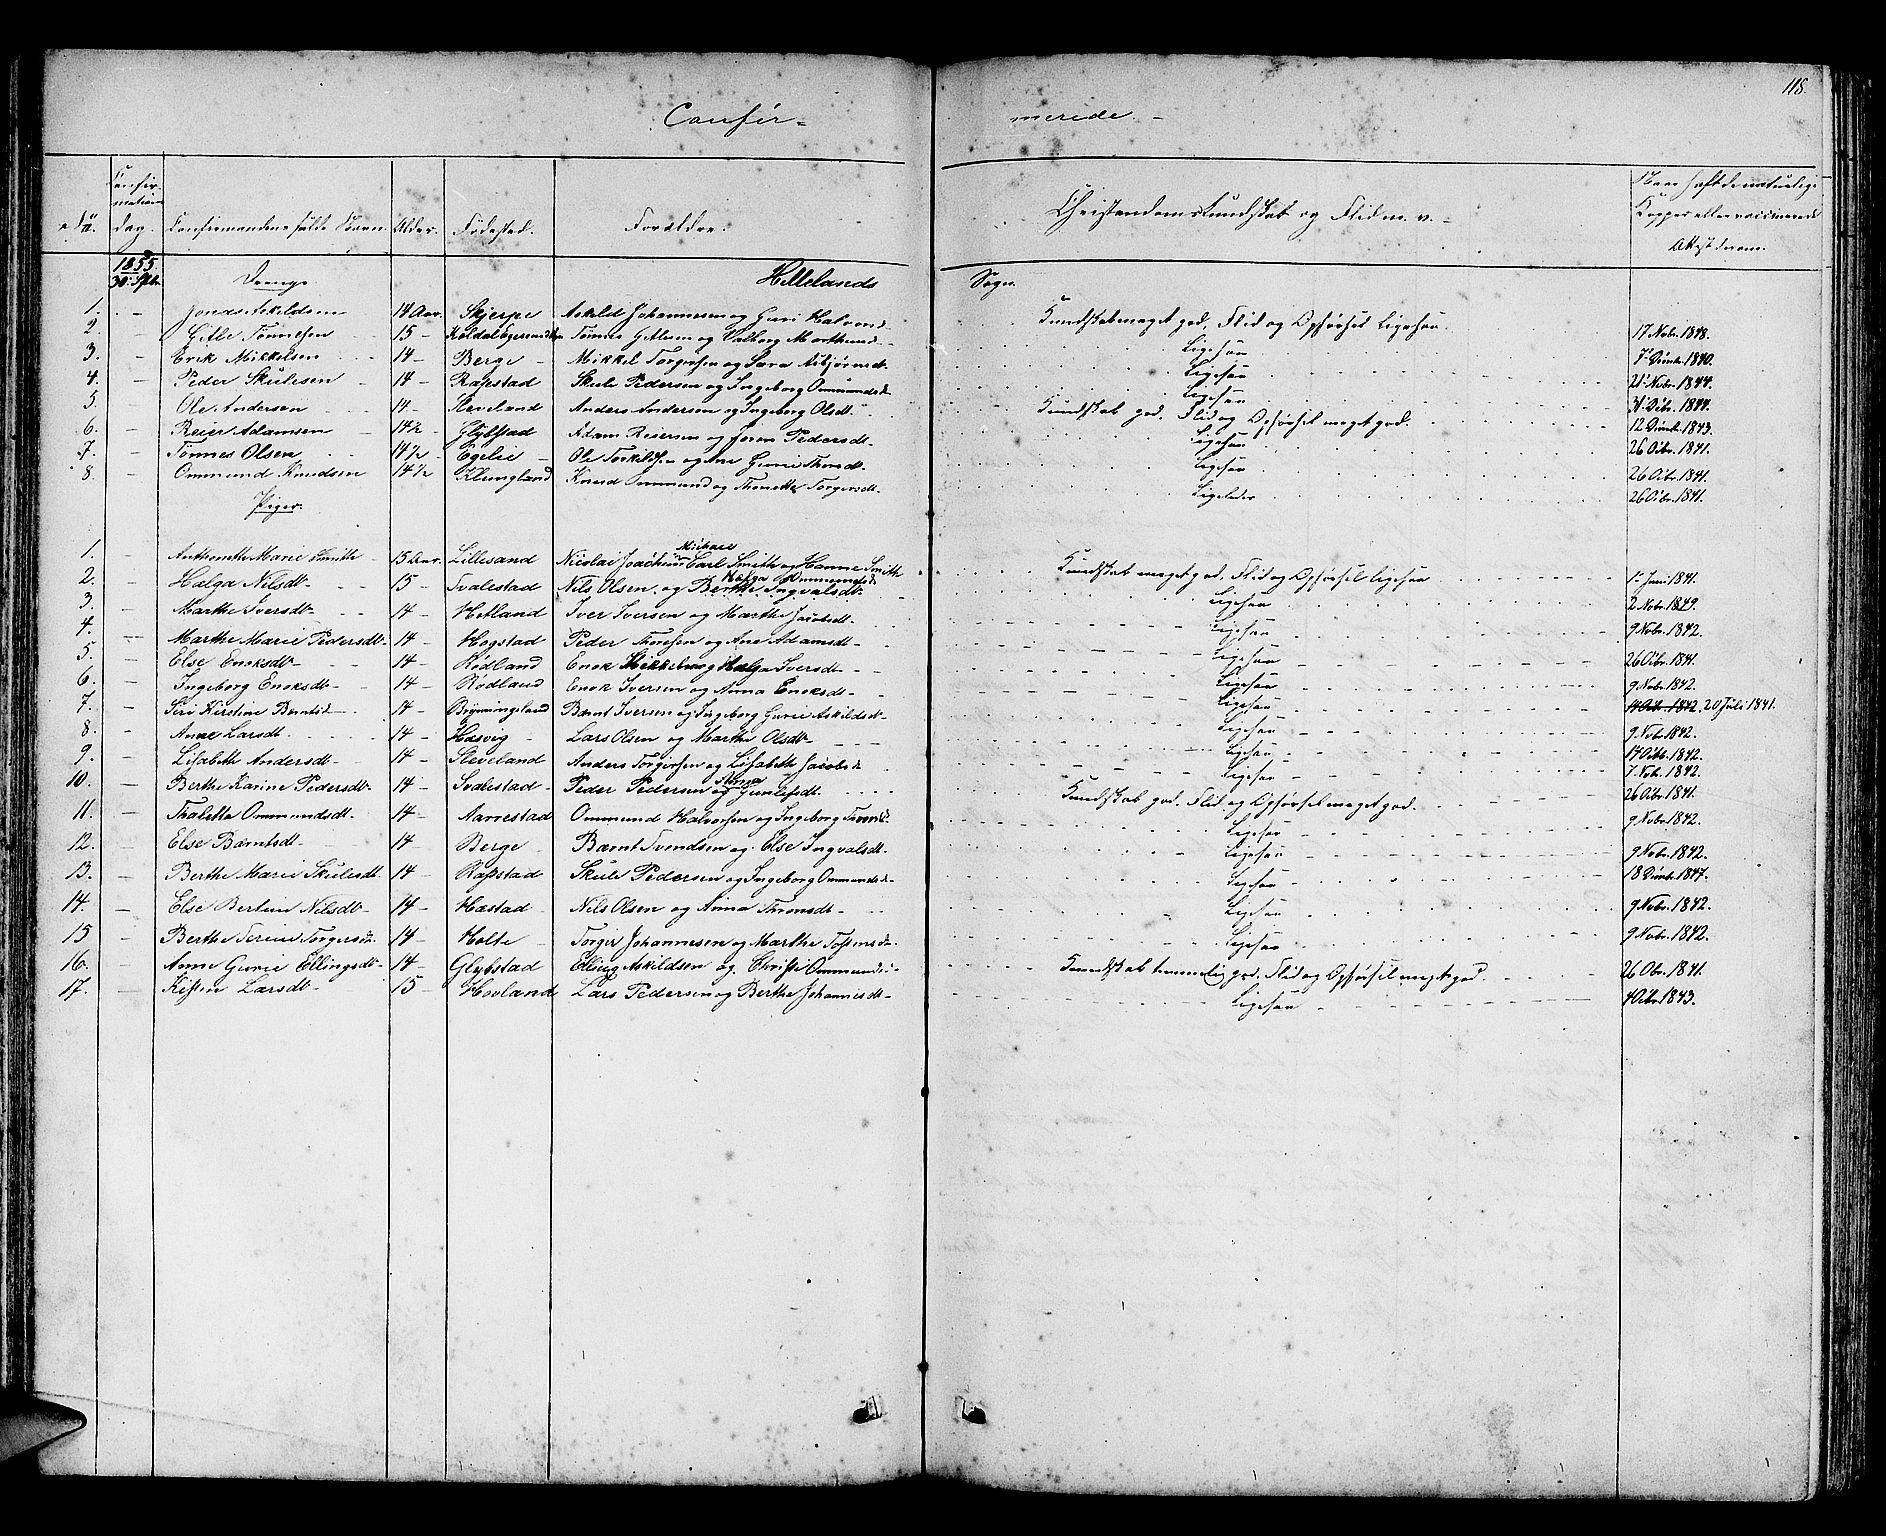 118.
Confir-
merede. -
No.
Confir-
mations
dag.
Confirmandens fulde Navn.
Alder.
Fødested.
Forældre.
Christendomskundskab og Flid m. v. -
Naar haft de naturlige
Kopper eller vaccinerede
Attest derom.
1855.
30. Sptbr.
Drenge
Hillelands
Sogn.
1. - Jonas Askildsen 14 Aar. Skjerpe Askild Johannessen og Guri Halvorsd. Kundskab meget god, Flid og Opførsel Ligesaa. 17 Nobr. 1848.
2. - Gitle Tønnesen 15 - Koldal Egersund Tønnes Gitlesen og Valborg Ligesaa 7 Decmbr. 1840.
3. - Erik Mikkelsen 14 - Berge - Mikkel Torgersen og Sara Asbjørnsdt. Ligesaa 21 Nobr. 1844.
4. - Peder Skulesen - 14 - Rapstad Skule Pedersen og Ingeborg Ommundsd. Ligesaa 31 Octbr. 1844.
5. Ole Andersen 14 - Sleveland Anders Andersen og Ingeborg Olsdt. Kundskab god. Flid og Opførsel meget god. 12 Decmbr. 1843.
6. - Reier Adamsen - 14½ - Glybstad Adam Reiersen og Joren Pedersdt. Ligesaa 26 Octbr. 1841.
7. - Tønnes Olsen 14½ - Egelie - Ole Torkilds. og Ane Gurie Thorsdt. Ligesaa 26 Octbr. 1841.
8. - Ommund Knudsen 14½ Klungland Knud Ommund og Thonette Torgersdt. Ligeledes 26 Octbr. 1841.
Piger.
Michael
1. - Anthonette Marie Smith 15 Aar. Lillesand Nicolai Joachim Carl Smith og Hanne Smith Kundskab meget god, Flid og Opførsel ligesaa 1. Juni 1841.
Helga Ommundsd
2. - Helga Nilsdt. 15 - Svalestad Nils Olsen og Berthe Ingvalsdt. Ligesaa 2 Nobr. 1849.
3. - Marthe Iversdt. 14 - Hetland Iver Iversen og Marthe Jacobsdt. Ligesaa 9 Nobr. 1842.
4. - Marthe Marie Pedersdt. 14 - Hogstad Peder Thorsen og Ane Adamsdt. Ligesaa 26 Octbr. 1841.
5. - Else Enoksdt. 14 - Rødland Enok Mikkelsen og Helga Iversdt. Ligesaa 9 Nobr. 1842.
6. - Ingeborg Enoksdt. 14 - Rødland Enok Iversen og Anna Enoksdt. Ligesaa 14 Octbr. 1842. 20 Juli 1841.
7. - Siri Kirstine Berntsd 14 - Bryningsland Bærnt Iversen og Ingeborg Gurie Askildsdt. Ligesaa 9 Nobr 1842.
8. - Anne Larsdt. 14 - Hæsvig - Lars Olsen og Marthe Olsdt. Ligesaa 17 Octbr. 1842.
9. - Lisabeth Andersdt. 14 - Sleveland Anders Torgersen og Lisabeth Jacobsd Ligesaa 7 Nob. 1842.
Anna
10. - Berthe Karine Pedersdt. 14 - Svalestad - Peder Pedersen og Gunlefsdt. Kundskab god. Flid og Opførsel meget god. 26 Octbr. 1841.
11. - Thalette Ommundsdt. 14 - Aarrestad Ommund Halvorsen og Ingeborg Ligesaa 9 Nobr. 1842.
12. - Else Bærntsdt. 14 - Berge - Bærnt Svendsen og Else Ingvalsdt. Ligesaa 9 Nobr. 1842.
13. - Berthe Marie Skulesdt. 14 - Rapstad Skule Pedersen og Ingeborg Ommundsd. Ligesaa 18 Decmbr. 1847.
14. - Else Bertine Nilsdt. 14 - Hæstad Nils Olsen og Anna Thronsdt. Ligesaa 9 Nobr. 1842.
15 - Berthe Serine Torgersdt. 14 - Holte Torger Johannesen og Marthe Tostensd. Ligesaa 9 Nobr. 1842.
16. - Anne Gurie Ellingsdt. 14 - Glybstad Elling Askildsen og Christi Ommunds. Kundskab temmelig god. Flid og Opførsel meget god. 26 Obr. 1841.
17. - Kisten Larsdt. 15 - Hovland Lars Pedersen og Berthe Johannesdt. Ligesaa 4 Octbr 1843.